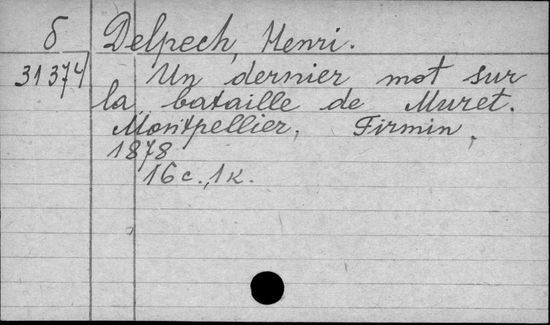 б Delpech, Henri.
31374 Un dernier mot sur
la bataille de Muret.
Montpellier, Firmin,
1878
16 с., 1 к.